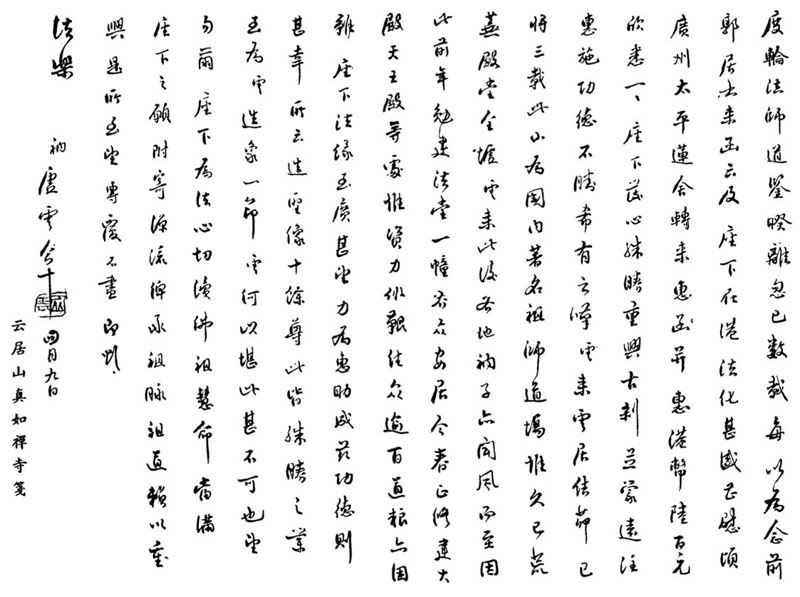 度輪法師道鑒暌離忽已數載每以為念前
郭居士來函云及座下在港法化甚盛至慰頃
廣州太平蓮舍轉來惠函并惠港幣陸百元
欣悉一一座下發心殊勝重興古剎並蒙遠注
惠施功德不勝希有言嘆雲來雲居住茆已
將三載此山為國內著名祖師道場惟久已荒
蕪殿堂全燬雲來此後各地衲子亦聞風而至因
此前年勉建法堂一幢為眾安居今春正修建大
殿天王殿等處惟資力維艱住眾逾百道糧亦困
難座下法緣至廣甚望力為惠助成茲功德則
甚幸所云造聖像十餘尊此皆殊勝之業
至為雲造像一節雲何以堪此甚不可也望
勿爾座下為法心切續佛祖慧命當滿
座下之願附寄源流俾承祖脈祖道賴以重
興是所至望專覆不盡即叩
法樂
衲虛雲合十
四月九日
云居山真如禪寺箋